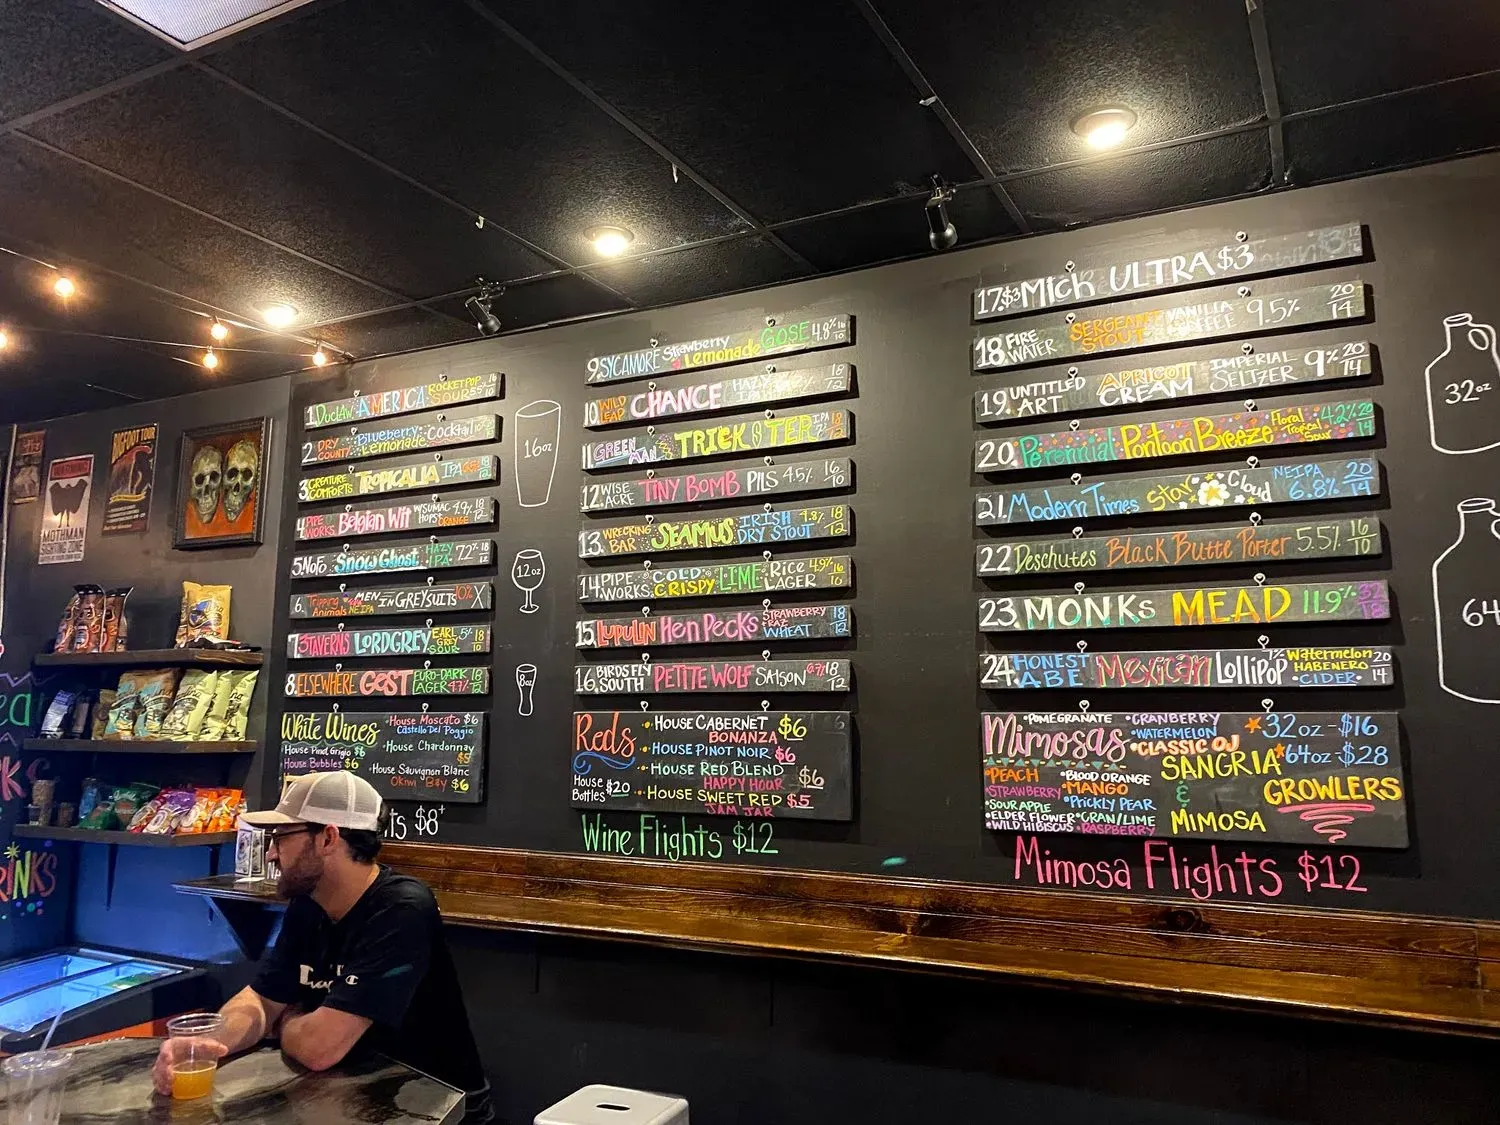 BIGFOOT TOUR
WARNING
MOTHMAN
SIGHTING ZONE
1. DuClaw AMERICA ROCKETPOP SOUR 5.5%
2. DRY COUNTY Blueberry Lemonade Cocktail
3. CREATURE COMFORTS TROPICALIA IPA
4. PIPE WORKS Belgian Wit W SUMAC HOPS ORANGE 4.9%
5. NoFo Snow Ghost HAZY IPA 7.2%
6. Tripping Animals MEN IN GREY SUITS NEIPA 10% X
7. 3 TAVERNS LORD GREY EARL GREY SOUR 5%
8. ELSEWHERE GEST EURO-DARK LAGER 4.7%
White Wines
• House Moscato $6
Castello Del Poggio
• House Pinot Grigio $6
• House Bubbles $6
• House Chardonnay $5
• House Sauvignon Blanc
Okiwi Bay $6
ts $8
16oz
12oz
8oz
9. SYCAMORE Strawberry Lemonade GOSE 4.8% 16/10
10. WILD LEAP CHANCE HAZY IPA 18/12
11. GREEN MAN TRICKSTER IPA
12. WISE ACRE TINY BOMB PILS 4.5% 16/10
13. WRECKING BAR SEAMUS IRISH DRY STOUT 18/12
14. PIPE WORKS COLD CRISPY LIME Rice LAGER 4.9% 16/10
15. LUPULIN Hen Pecks STRAWBERRY WHEAT 18/12
16. BIRDS FLY SOUTH PETITE WOLF SAISON 18/12
Reds
• HOUSE CABERNET $6
BONANZA
• HOUSE PINOT NOIR $6
• HOUSE RED BLEND $6
HAPPY HOUR
• HOUSE SWEET RED $5
JAM JAR
House Bottles $20
Wine Flights $12
17. $3 Mich ULTRA $3
18. FIRE WATER SERGEANT STOUT VANILLA COFFEE 9.5% 20/14
19. UNTITLED ART APRICOT CREAM IMPERIAL SELTZER 9% 20/14
20. Perennial Pontoon Breeze Floral Tropical Sour 4.2% 20/14
21. Modern Times Star Cloud NEIPA 6.8% 20/14
22 Deschutes Black Butte Porter 5.5% 16/10
23. MONKS MEAD 11.9% 32/18
24. HONEST ABE Mexican Lollipop 7% Watermelon HABENERO • CIDER • 20/14
Mimosas
• POMEGRANATE
• CRANBERRY
• WATERMELON
• CLASSIC OJ
• PEACH
• BLOOD ORANGE
• STRAWBERRY
• MANGO
• SOUR APPLE
• PRICKLY PEAR
• ELDER FLOWER
• CRAN/LIME
• WILD HIBISCUS
• RASPBERRY
32oz - $16
64oz - $28
SANGRIA
&
MIMOSA
GROWLERS
Mimosa Flights $12
32oz
64